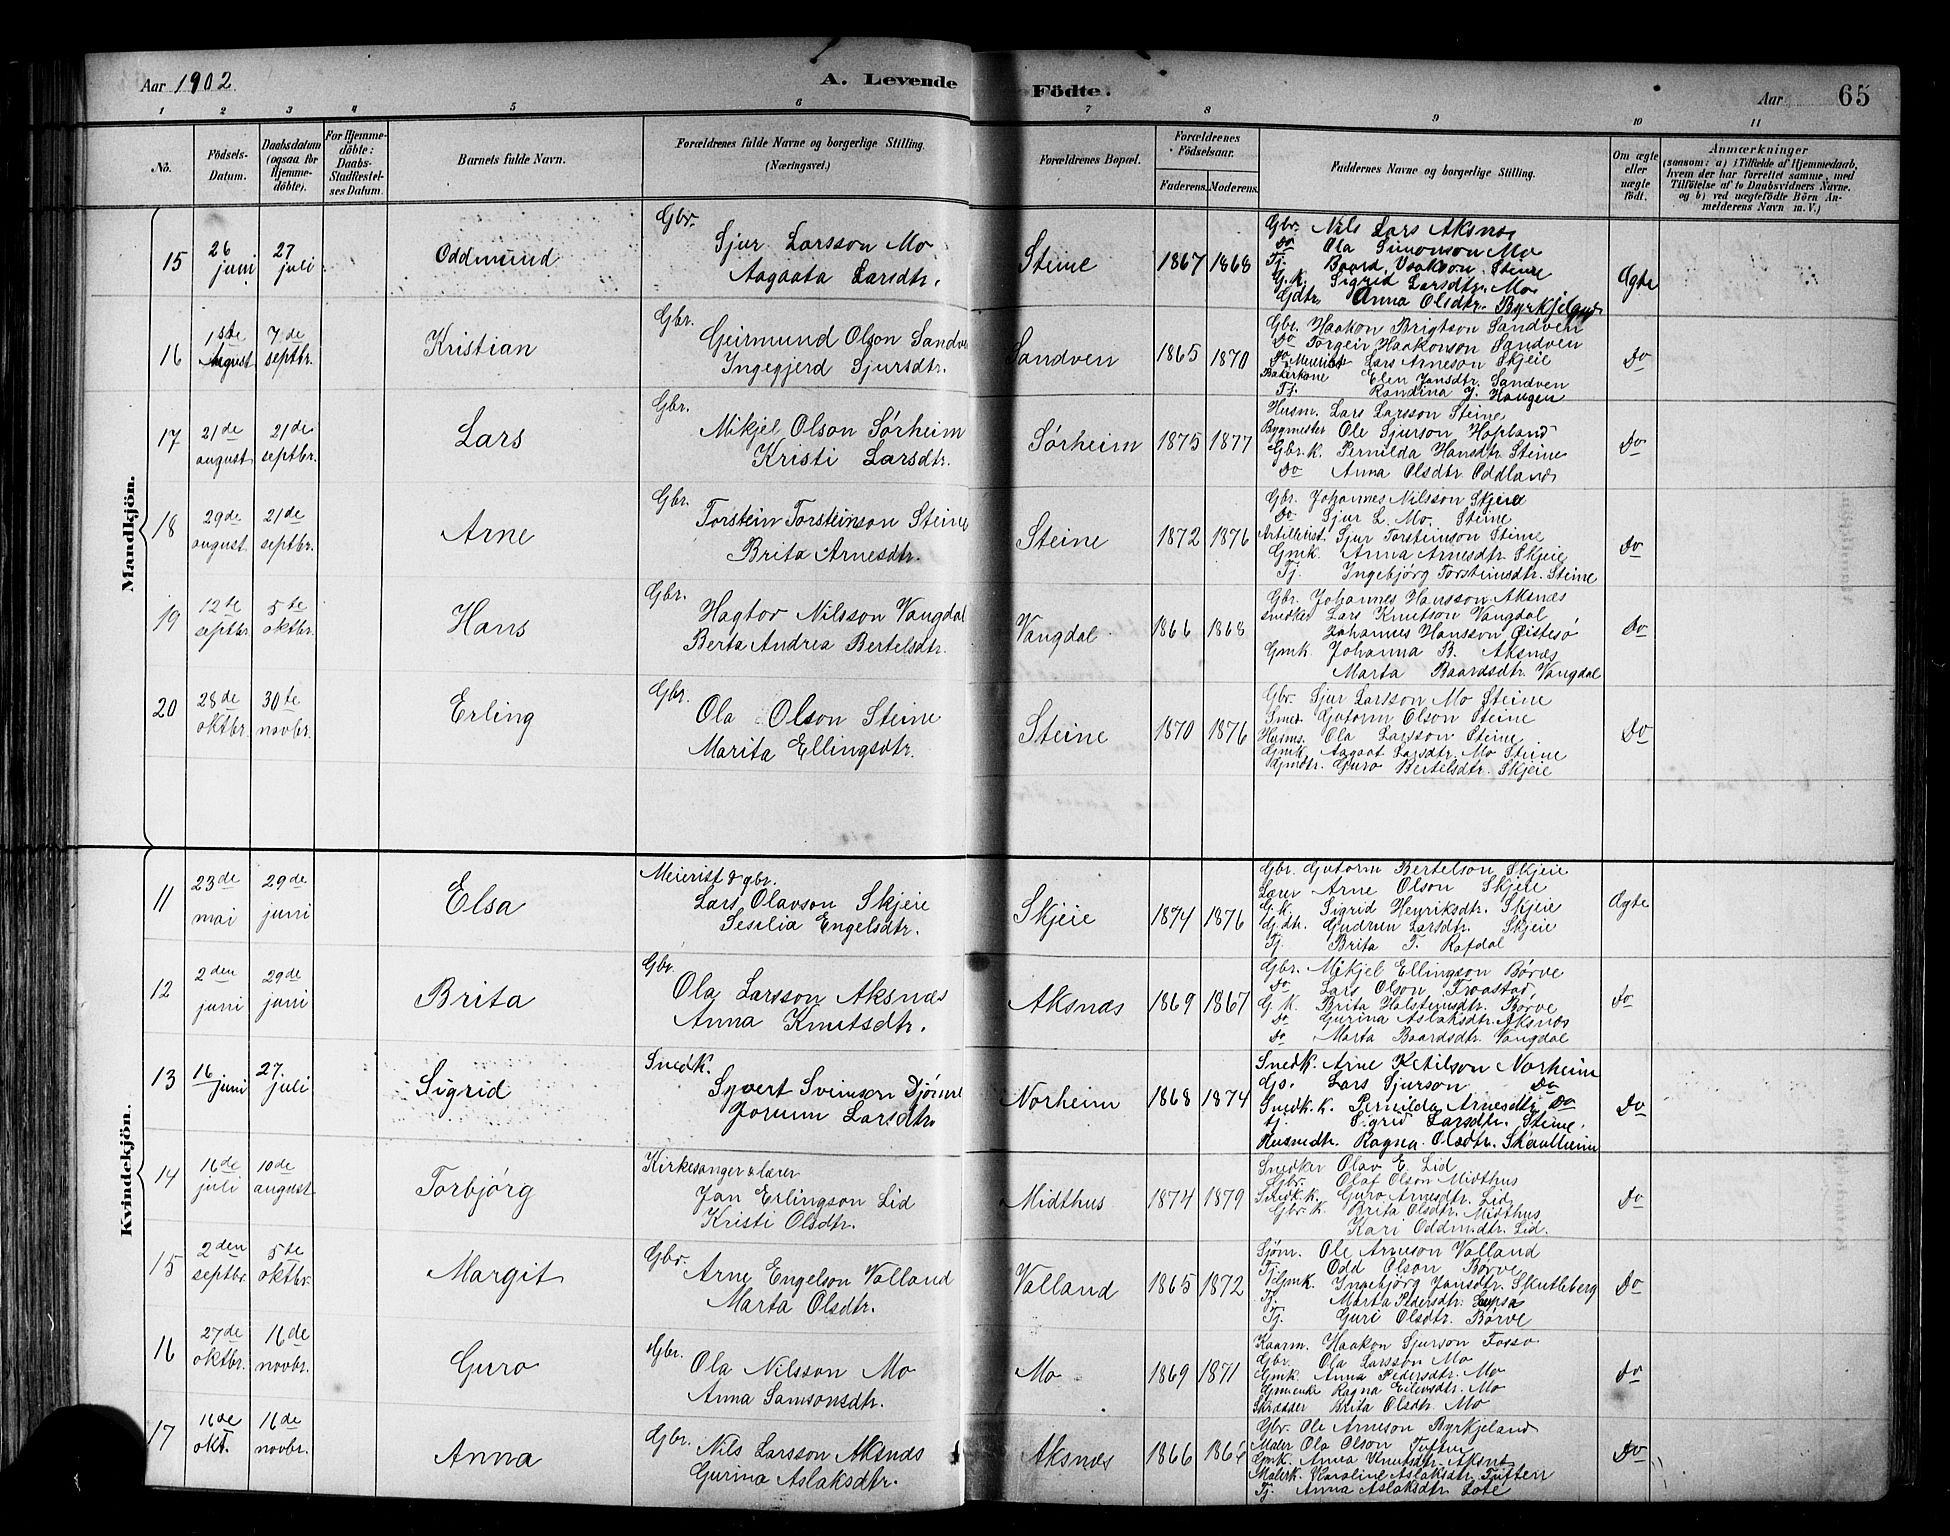 Aar 1902. A. Levende Födte. Aar 65
1 2 3 4 5 6 7 8 9 10 11
No. Födsels-Datum. Daabsdatum (ogsaa för Hjemmedöbte). For Hjemmedöbte: Daabs-Stadfæstelses Datum. Barnets fulde Navn. Forældrenes fulde Navne og borgerlige Stilling (Næringsvei.) Forældrenes Bopæl. Forældrenes Födselsaar. Faderens. Moderens. Faddernes Navne og borgerlige Stilling. Om ægte eller uægte födt. Anmærkninger (saasom: a) i Tilfælde af Hjemmedaab, hvem der har forrettet samme, med Tilföielse af to Daabsvidners Navne. og b) ved uægtefödte Börn Anmelderens Navn m. V.)
Mandkjön.
15 26 juni 27 juli Oddmund Gbr. Sjur Larsson Mo
Aagaata Larsdtr. Steine 1867 1868 Ægte
Gbr. Nils Lars Aksnes
Do Ola Simonson Mo
Tj. Baard Steine
G.K. Sigrid Larsdtr. Mo
Gdtr. Anna Olsdtr. Byrkjeland
16 1ste august 7de septbr. Kristian Gbr. Geirmund Olson Sandven
Ingegjerd Sjursdtr. Sandven 1865 1870 Do
Gbr. Haakon Brigtson Sandven
Do Torgeir Haakonson Sandven
Do Meierist Lars Arneson Skjeie
Bakerkone Elen Jansdtr. Sandven
Tj. Randina J. Haugen
17 21de august 21de septbr. Lars Gbr. Mikjel Olson Sørheim
Kristi Larsdtr. Sørheim 1875 1877 Do
Husm. Lars Larsson Steine
Bygmester Ole Sjurson Hopland
Gbr. K. Pernilda Hansdtr. Steine
Do Anna Olsdtr Oddland
18 29de august 21de septbr. Arne Gbr. Torstein Torsteinson Steine
Brita Arnesdtr. Steine 1872 1876 Do
Gbr. Johannes Nilsson Skjeie
Do Sjur L. Mo. Steine
Artillerist Sjur Torsteinson Steine
Gmk. Anna Arnesdtr. Skjeie
Tj. Ingebjörg Torsteinsdtr. Steine
19 12te septbr. 5te oktbr. Hans Gbr. Hagtor Nilsson Vangdal
Berta Andrea Bertelsdtr. Vangdal 1866 1868 Do
Gbr. Johannes Hansson Aksnæs
Snedker Lars Knutson Vangdal
Johannes Hansson Øistesø
Gmk. Johanna B. Aksnæs
Marta Baardsdtr. Vangdal
20 28de oktbr. 30te novbr. Erling Gbr. Ola Olson Steine
Marita Ellingsdtr. Steine 1870 1876 Do
Gbr. Sjur Larsson Mo Steine
Smed. Gutorm Olson Steine
Husm. Ola Larsson Steine
Gmk. Aagaat Larsdtr. Mo Steine
Gmdtr. Guro Bertelsdtr. Skjeie
Kvindekjön.
11 23de mai 29de juni Elsa Meierist & gbr. Lars Olavson Skjeie
Sesilia Engelsdtr. Skjeie 1874 1876 Ægte
Gbr. Gutorm Bertelson Skjeie
Lærer Arne Olson Skjeie
G.K. Sigrid Henriksdtr. Skjeie
Gj.dtr. Gudrun Larsdtr. Skjeie
Tj. Brita T. Rafdal
12 2den juni 29de juni Brita Gbr. Ola Larsson Aksnæs
Anna Knutsdtr. Aksnæs 1869 1867 Do
Gbr. Mikjel Ellingson Børve
Do Lars Olson Traastad
G.K. Brita Halsteinsdtr. Børve
Do Gurina Aslaksdtr. Aksnæs
Do Marta Baardsdtr. Vangdal
13 16 juni 27. juli Sigrid Snedk. Syvert Sveinson Djönne
Jorunn Larsdtr. Norheim 1868 1874 Do
Snedk. Arne Ketilson Norheim
Lars Sjurson Do
Snedk. k. Pernilda Arnesdtr. Do
tj. Sigrid Larsdtr. Steine.
Husmdtr. Ragna Olsdtr. Skaulheim
14 16de juli 10de august Torbjörg Kirkesanger & lærer
Jan Erlingson Lid
Kristi Olsdtr. Midthus 1874 1879 Do
Snedker Olav E. Lid
Gbr. Olaf Olson Midthus
Snedk.k. Guro Arnesdtr. Lid
Gbr. k. Brita Olsdtr. Midthus
Kari Oddm.dtr. Lid.
15 2den septbr. 5te oktbr. Margit Gbr. Arne Engelson Valland
Marta Olsdtr. Valland 1865 1872 Do
Sjøm. Ole Arneson Valland
Tj. Odd Olson Børve
Gmk. Ingebjörg Jansdtr. Skutleberg
Tj. Marta Pedersdtr. Lupsa
Tj. Guri Olsdtr. Børve
16 27de oktbr. 16de novbr. Guro Gbr. Ola Nilsson Mo
Anna Samsonsdtr. Mo 1869 1871 Do
Kaarm. Haakon Sjurson Fosso
Gbr. Ola Larsson Mo
Gmk. Anna Pedersdtr. Mo
Gmenke Ragna Eilevsdtr. Mo
Skrædder Brita Olsdtr. Mo
17 16de okt. 16de novbr. Anna Gbr. Nils Larsson Aksnæs
Gurina Aslaksdtr. Aksnæs 1866 Do
Gbr. Ole Arneson Byrkjeland
Maler Ola Olson Tuften
Gmk. Anna Knutsdtr. Aksnæs
Malerk. Karoline Aslaksdtr. Tuften
Tj. Anna Aslaksdtr. Lote